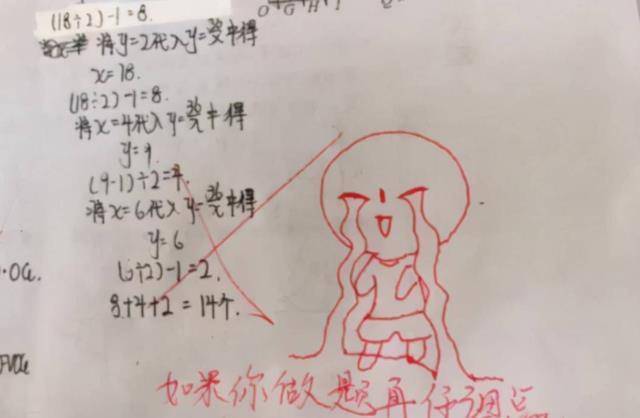 (18÷2)-1=8.
将y=2代入y=36/x中得
x=18.
(18÷2)-1=8.
将x=4代入y=36/x中得
y=9.
(9-1)÷2=4.
将x=6代入y=36/x中得
y=6
(6÷2)-1=2.
8+4+2=14个.
如果你做题再仔细点